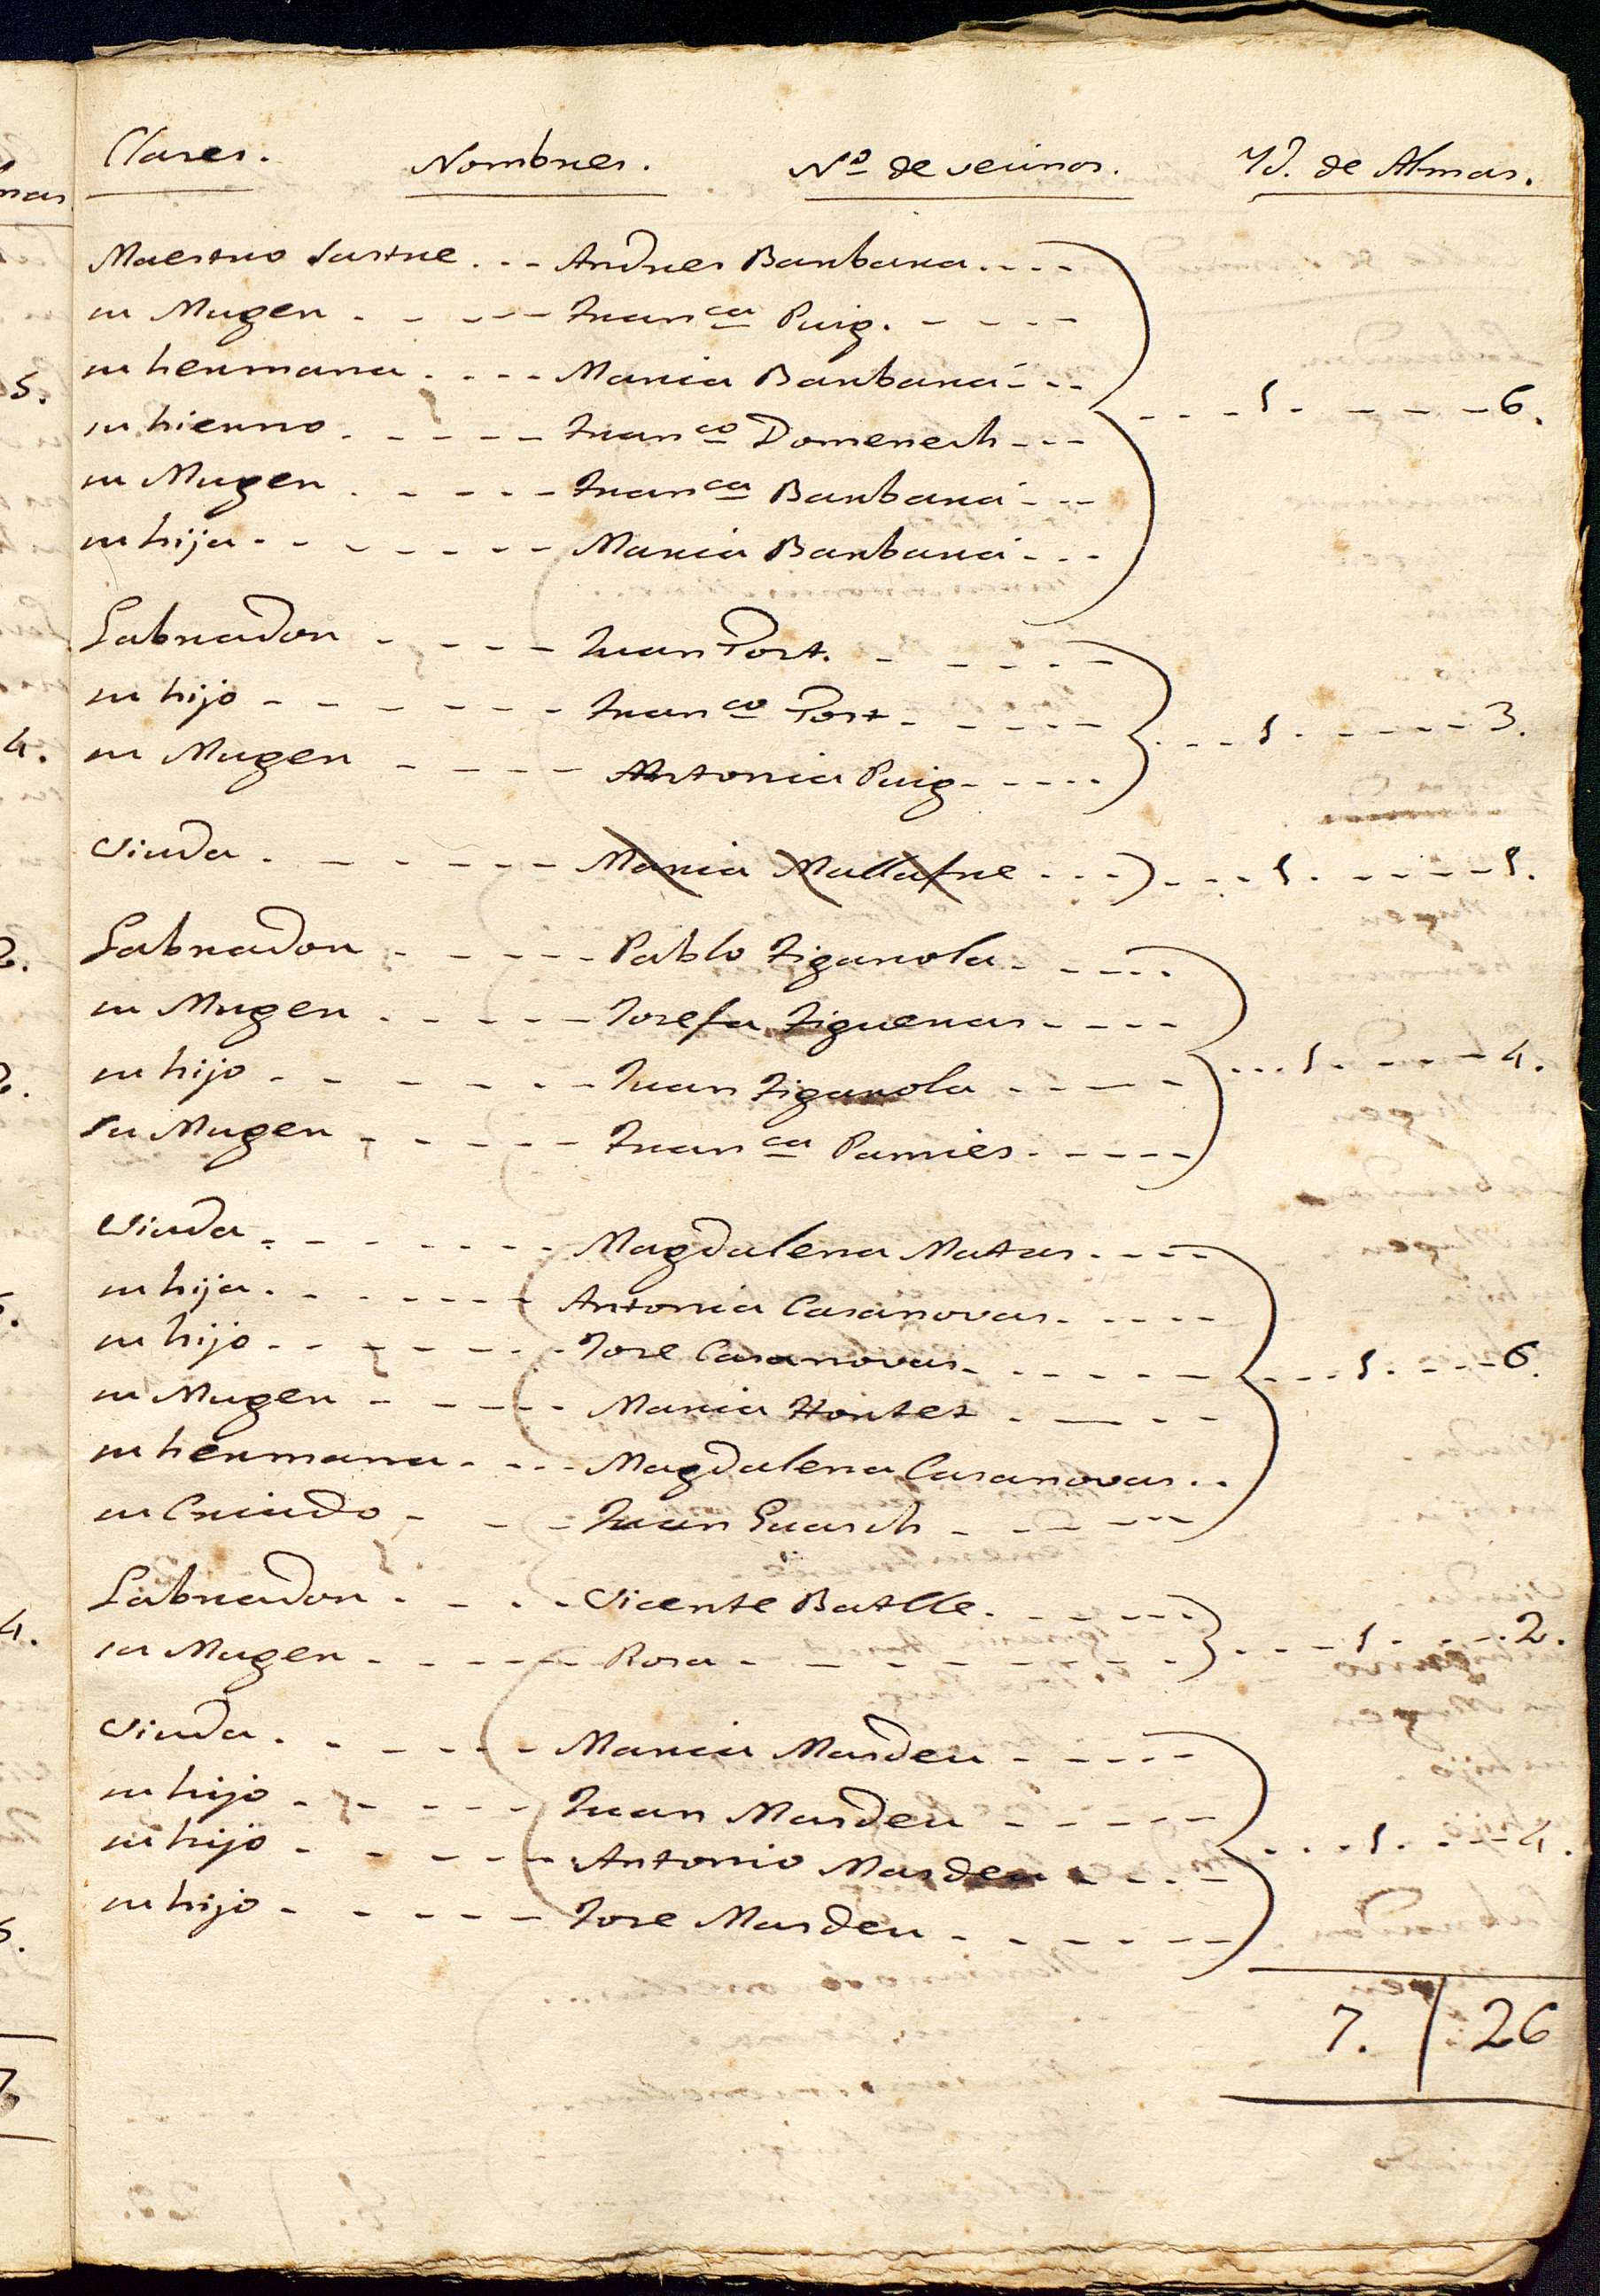 Clases. Nombres. Nº de vecinos. Yd. de Almas.
Maestro Sastre . - - Andres Barbara . - - -
su Muger . - - - - Fran.ca Puig . - - - -
su hermana . - - - Maria Barbará - - -
su hierno . - - - - - Fran.co Domenech - - - - - - 1 . - - - - 6.
su Muger . - - - - Fran.ca Barbará - - -
su hija - - - - - - - - Maria Barbará - - -
Labrador - - - - - Juan Port. - - - - -
su hijo - - - - - - - Fran.co Port - - - - - - - - 1 . - - - - - 3.
su Muger - - - - - Antonia Puig - - - - -
Viuda . - - - - - - Maria Mallafre - - - ) - - - 1 . - - - - - 1.
Labrador - - - - - Pablo Figarola - - - - -
su Muger . - - - - - Josefa Figueras - - - -
su hijo - - - - - - - Juan Figarola - - - - . . . 1 . - - - - 4.
Su Muger - - - - - Fran.ca Pamies - - - - -
Viuda . - - - - - - - Magdalena Matas - - - -
su hija . - - - - - - Antonia Casanovas - - - -
su hijo - - - - - - - Jose Casanovas - - - - - - - - - 1 . - - - 6.
su Muger - - - - - Maria Hortet - - - -
su hermana - - - - Magdalena Casanovas . .
su Criado - - - - Juan Guasch - - - - -
Labrador . - - - Vicente Batlle . - - - - -
su Muger - - - - - - Rosa - - - - - - - - - - - - 1 . - - - 2.
Viuda . - - - - - Maria Masdeu - - - - -
su hijo - - - - - - Juan Masdeu - - - - -
su hijo - - - - - - Antonio Masdeu - - - - . . . . 1 . - - - 4.
su hijo - - - - - - Jose Masdeu - - - - - -
7. / 26